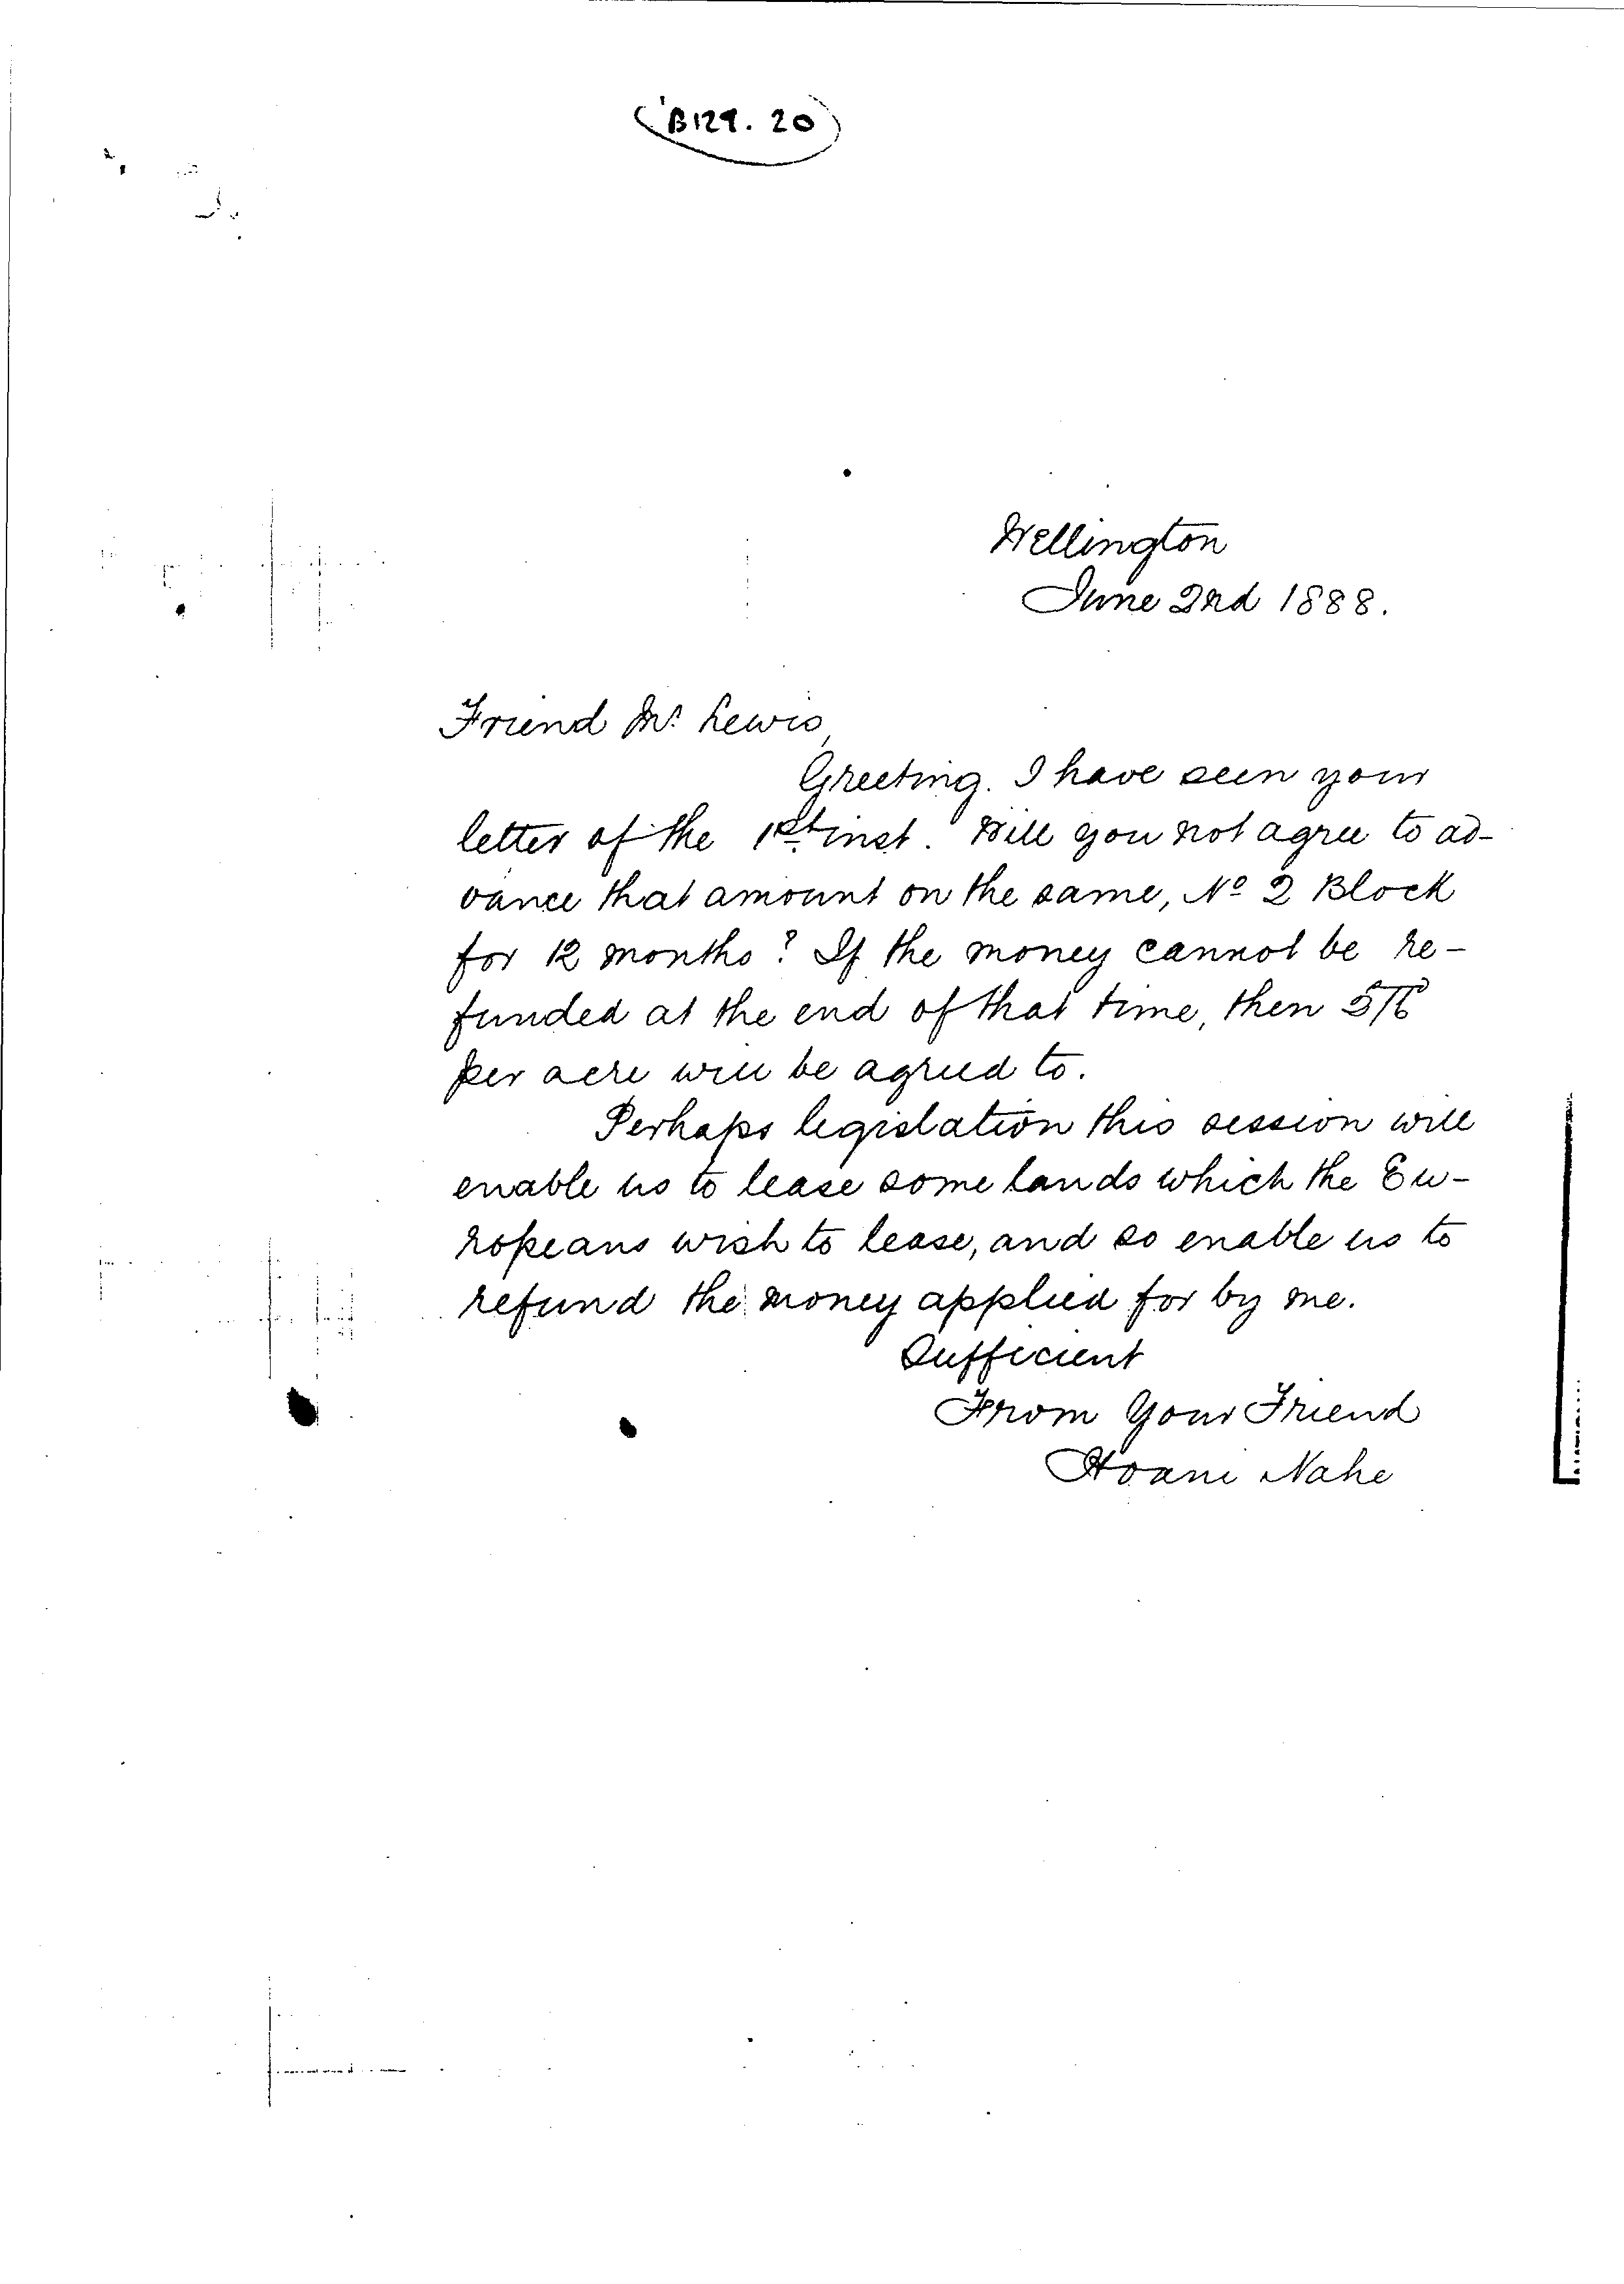 B129. 20
Wellington
June 2nd 1888.
Friend Mr. Lewis,
Greeting. I have seen your
letter of the 1st. inst. Will you not agree to ad-
vance that amount on the same, No 2 Block
for 12 months? If the money cannot be re-
funded at the end of that time, then 5/6
per acre will be agreed to.
Perhaps legislation this session will
enable us to lease some lands which the Eu-
ropeans wish to lease, and so enable us to
refund the money applied for by me.
Sufficient
From Your Friend
Hoani Nahe